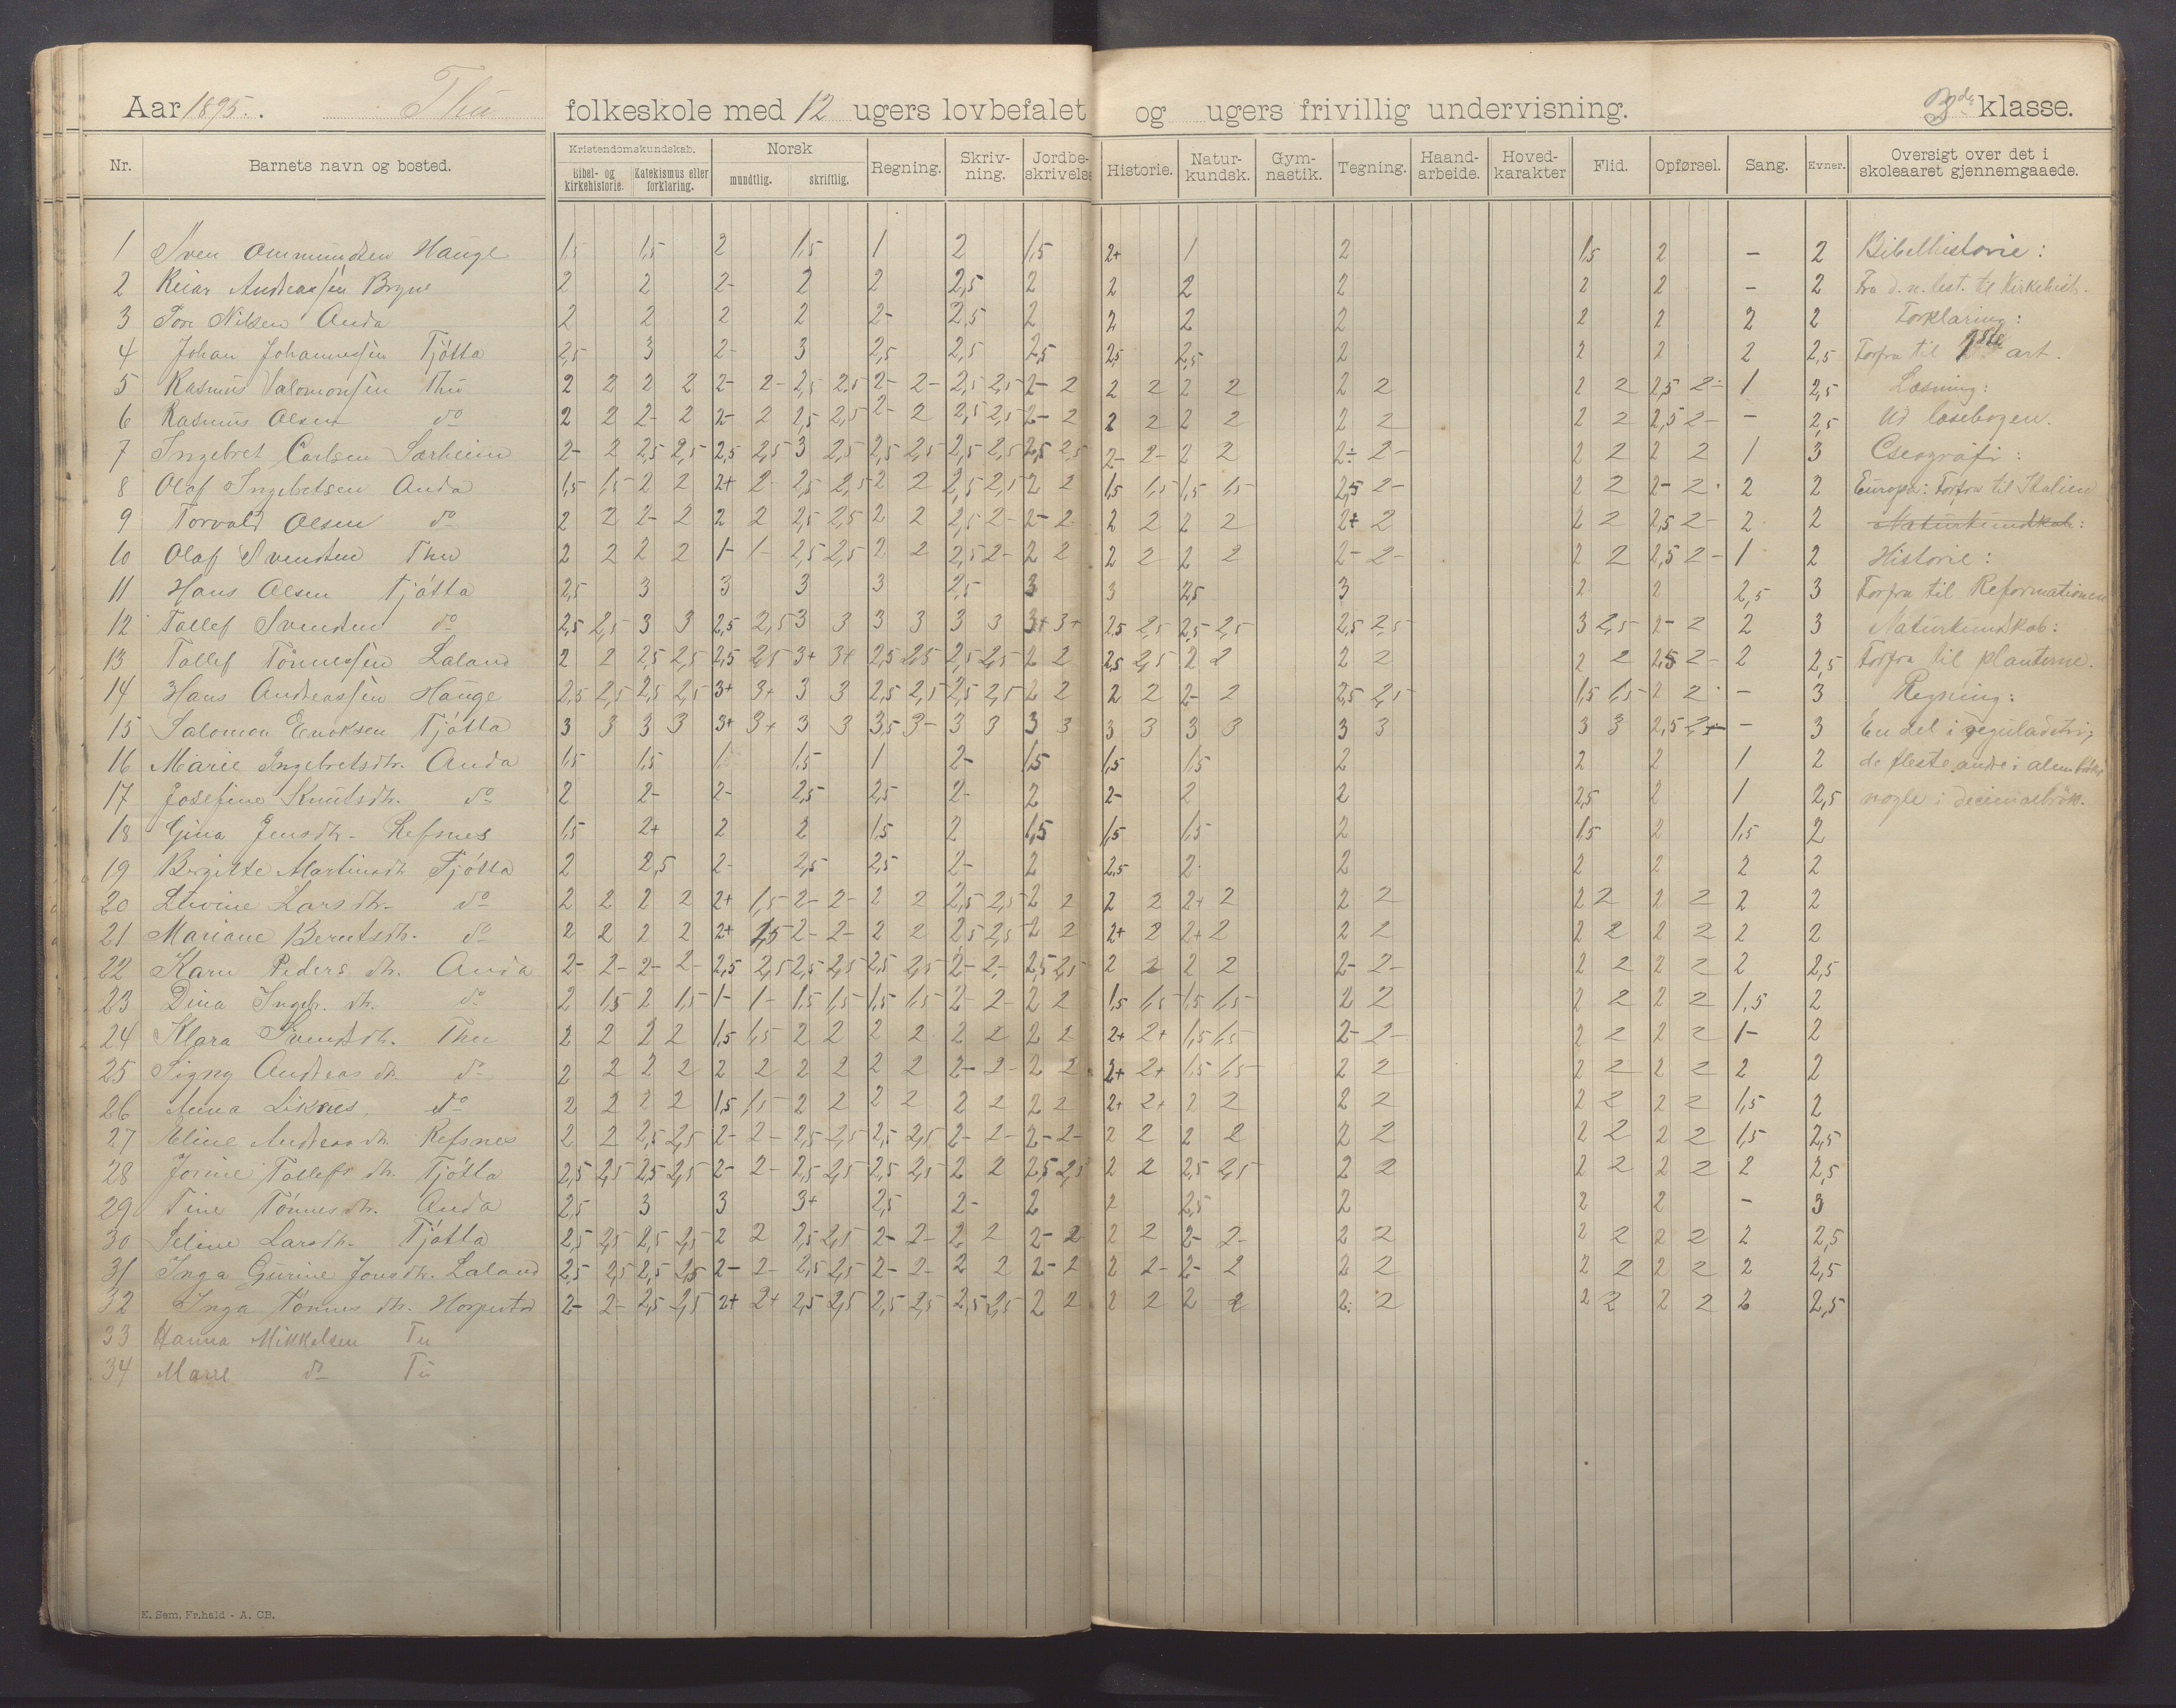 Aar 1895. Thu folkeskole med 12 ugers lovbefalet og ugers frivillig undervisning. 3die klasse.
Nr. Barnets navn og bosted. Kristendomskundskab. Bibel- og kirkehistorie. Katekismus eller forklaring. Norsk mundtlig. skriftlig. Regning. Skrivning. Jordbeskrivelse Historie. Naturkundsk. Gymnastik. Tegning. Haandarbeide. Hovedkarakter Flid. Opførsel. Sang. Evner. Oversigt over det i skoleaaret gjennemgaaede.
1 Sven Ommundsen Hauge 1,5 1,5 2 1,5 1 2 1,5 2+ 1 2 1,5 2 – 2 Bibelhistorie:
2 Reiar Andreassen Bryne 2 2 2- 2 2 2,5 2 2 2 2 2 2 – 2 Fra d. n. test. til Kirkehist.
3 Tore Nilsen Anda 2 2 2 2 2- 2,5 2 2 2 2 2 2 2 2 Forklaring:
4 Johan Johannessen Tjøtta 2,5 3 2- 3 2,5 2,5 2,5 2,5 2,5 2 2 2 2 2,5 Forfra til 1ste art.
5 Rasmus Salomonsen Thu 2 2 2 2 2- 2- 2,5 2,5 2- 2- 2,5 2,5 2- 2 2 2 2 2 2 2 2 2 2,5 2- 1 2,5 Læsning:
6 Rasmus Olsen do 2 2 2- 2 2- 2 2,5 2,5 2- 2 2,5 2,5 2- 2 2 2 2 2 2 2 2 2 2,5 2- – 2,5 Ud læsebogen.
7 Ingebret Carlsen Sørheim 2- 2 2,5 2,5 2,5 2,5 3 2,5 2,5 2,5 2,5 2,5 2,5 2,5 2- 2- 2 2 2- 2- 2 2 2 2 1 3 Geografi:
8 Olaf Ingebretsen Anda 1,5 1,5 2 2 2+ 2- 2,5 2,5 2 2 2,5 2,5 2 2 1,5 1,5 1,5 1,5 2,5 2- 2 2 2- 2- 2 2 Europa: Forfra til Italien
9 Torvald Olsen do 2 2 2- 2 2 2 2,5 2,5 2 2 2,5 2- 2- 2 2 2 2 2 2+ 2 2 2 2,5 2- 2 2 Naturkundskab:
10 Olaf Svendsen Thu 2 2 2 2 1- 1- 2,5 2,5 2 2 2,5 2- 2 2 2 2 2 2 2- 2- 2 2 2,5 2- 1 2 Historie:
11 Hans Olsen Tjøtta 2,5 3 3 3 3 2,5 3 3 2,5 3 2 2 2,5 3 Forfra til Reformationen
12 Tollef Svendsen do 2,5 2,5 3 3 2,5 2,5 3 3 3 3 3 3 3+ 3+ 2,5 2,5 2,5 2,5 2,5 2,5 3 2,5 2- 2 2 3 Naturkundskab:
13 Tollef Tønnessen Laland 2 2 2,5 2,5 2,5 2,5 3+ 3+ 2,5 2,5 2,5 2,5 2 2 2,5 2,5 2 2 2 2 2 2 2,5 2- 2 2,5 Forfra til planterne.
14 Hans Andreassen Hauge 2,5 2,5 2,5 2,5 3+ 3+ 3 3 2,5 2,5 2,5 2,5 2 2 2 2 2- 2 2,5 2,5 1,5 1,5 2 2 – 3 Regning:
15 Salomon Enoksen Tjøtta 3 3 3 3 3+ 3+ 3 3 3,5 3- 3 3 3 3 3 3 3 3 3 3 3 3 2,5 2+ – 3 En del i reguladetri,
16 Marie Ingebretsdtr. Anda 1,5 1,5 1 1,5 1 2- 1,5 1,5 1,5 2 2 2 1 2 de fleste andre i alm. brøk,
17 Josefine Knutsdtr. do 2 2- 2- 2,5 2,5 2- 2 2- 2 2 2,5 2 1 2,5 nogle i decimalbrøk.
18 Gina Jensdtr. Refsnes 1,5 2+ 2 2 1,5 2 1,5 1,5 1,5 2 1,5 2 1,5 2
19 Birgitte Martinsdtr. Tjøtta 2 2,5 2- 2,5 2,5 2- 2 2,5 2 2 2 2 2 2
20 Lovine Larsdtr. do 2 2 2 2 2+ 1,5 2- 2- 2 2 2,5 2,5 2 2 2 2 2+ 2 2 2 2 2 2 2 2 2
21 Mariane Berntsdtr. do 2 2 2 2 2+ 1,5 2- 2- 2 2 2,5 2,5 2 2 2+ 2 2+ 2 2 2 2 2 2 2 2 2
22 Karn Peders dtr. Anda 2- 2- 2- 2- 2,5 2,5 2,5 2,5 2,5 2,5 2- 2- 2,5 2,5 2 2 2 2 2- 2- 2 2 2 2 2 2,5
23 Dina Ingeb. dtr. do 2 1,5 2 1,5 1- 1- 1,5 1,5 1,5 1,5 2- 2- 2 2 1,5 1,5 1,5 1,5 2 2 2 2 2 2 1,5 2
24 Klara Svendsdtr. Thu 2 2 2 2 1,5 1,5 2 2 2 2 2 2 2 2 2+ 2+ 1,5 1,5 2- 2- 2 2 2 2 1- 2
25 Signy Andreas dtr. do 2 2 2 2 2 2 2 2 2 2 2- 2- 2 2 2+ 2+ 1,5 1,5 2 2 2 2 2 2 2 2
26 Anna Liknes do 2 2 2 2 1,5 1,5 2 2 2 2 2 2 2 2 2+ 2+ 2 2 2 2 2 2 2 2 1,5 2
27 Eline Andreas dtr. Refsnes 2 2 2,5 2,5 2- 2- 2,5 2,5 2,5 2,5 2- 2- 2- 2- 2 2 2 2 2 2 2 2 2 2 1,5 2,5
28 Jorine Tollefs dtr. Tjøtta 2,5 2,5 2,5 2,5 2- 2- 2,5 2,5 2,5 2,5 2 2 2,5 2,5 2 2 2,5 2,5 2 2 2 2 2 2 2 2,5
29 Tine Tønnesdtr. Anda 2,5 3 3 3+ 2,5 2- 2 2 2,5 2 2 2 – 3
30 Seline Larsdtr. Tjøtta 2,5 2,5 2,5 2,5 2 2 2,5 2,5 2- 2- 2 2 2- 2 2 2 2- 2- 2 2 2 2 2 2 2 2,5
31 Inga Gurine Jonsdtr. Laland 2,5 2,5 2,5 2,5 2- 2- 2,5 2,5 2- 2- 2 2 2- 2 2 2- 2- 2 2 2 2 2 2 2 2 2,5
32 Inga Tønnes dtr. Horpestad 2- 2- 2,5 2,5 2+ 2+ 2,5 2,5 2,5 2,5 2,5 2,5 2 2 2 2 2 2 2 2 2 2 2 2 2 2,5
33 Hanna Mikkelsen Tu
34 Marie do Tu
K. Sem. Fr.hald - A. CB.